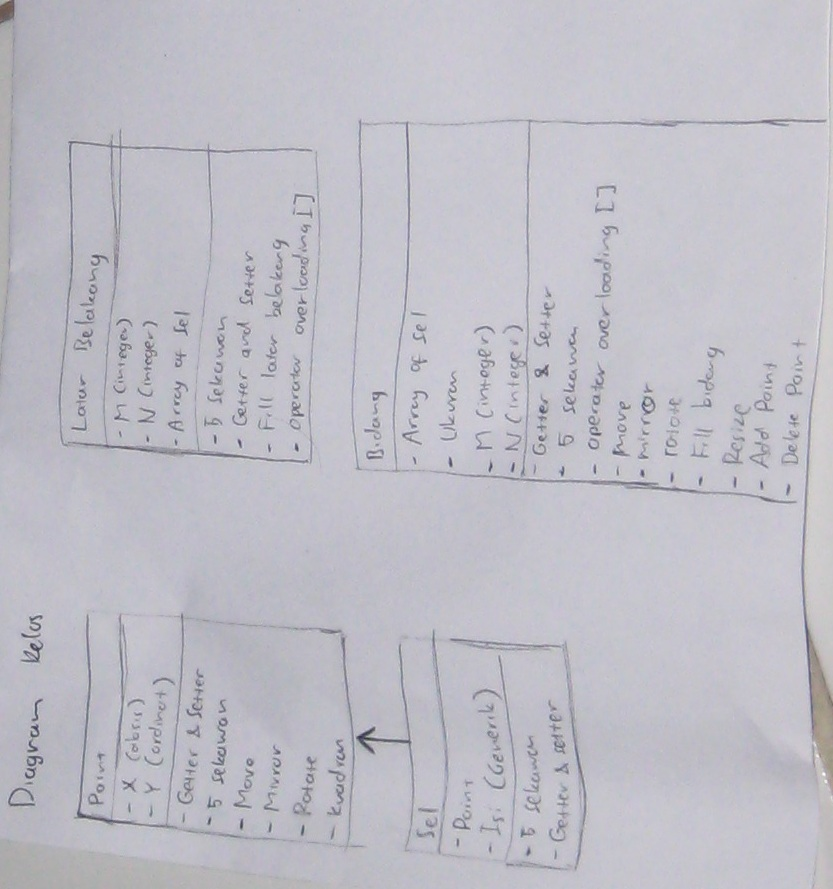 Diagram Kelas
Point
- X (absis)
- Y (ordinat)
- Getter & Setter
- 5 sekawan
- Move
- Mirror
- Rotate
- kuadran
Sel
- Point
- Isi (Generik)
- 5 sekawan
- Getter & setter
Latar Belakang
- M (integer)
- N (integer)
- Array of Sel
- 5 sekawan
- Getter and Setter
- Fill latar belakang
- Operator overloading []
Bidang
- Array of Sel
- Ukuran
- M (integer)
- N (integer)
- Getter & Setter
- 5 sekawan
- operator overloading []
- Move
- mirror
- rotate
- Fill bidang
- Resize
- Add Point
- Delete Point